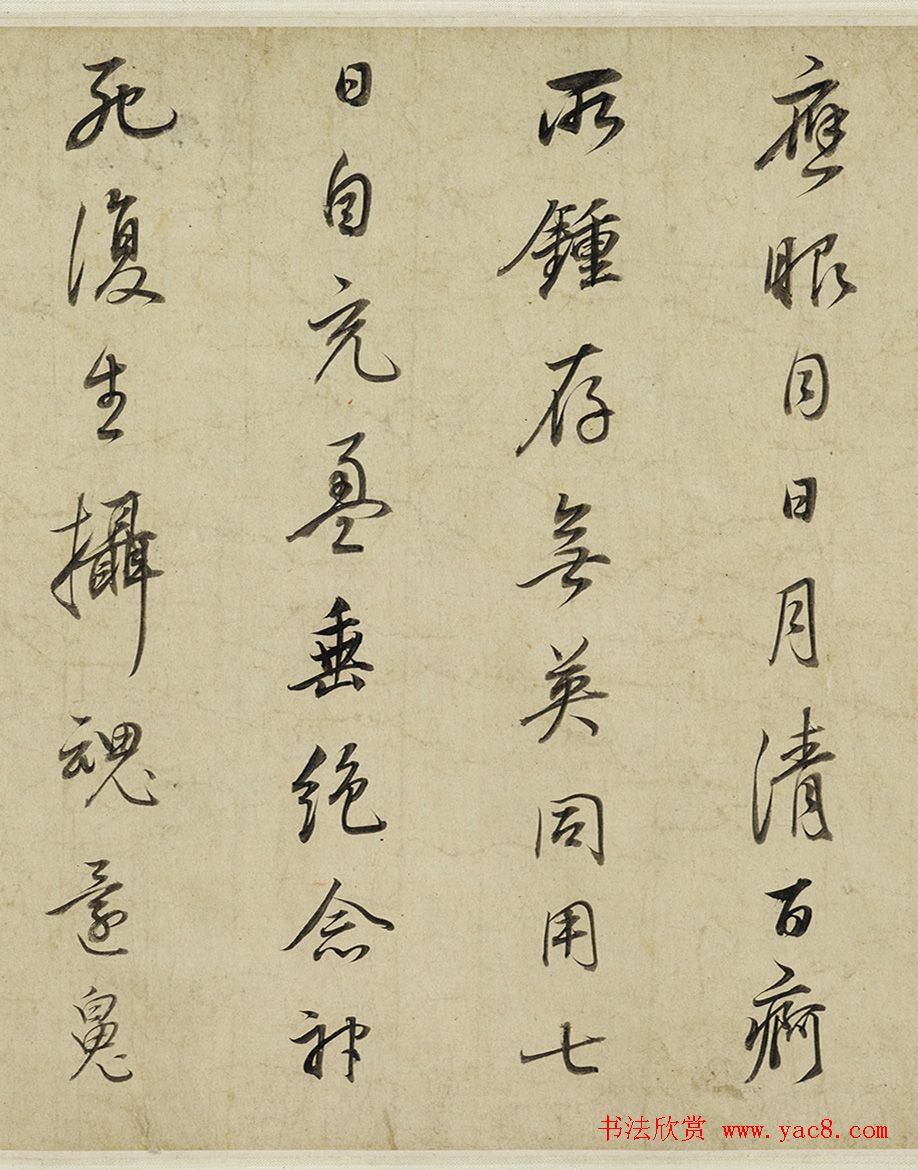 應眼目日月清百痾
所鍾存無英同用七
日自充盈垂絶念神
死復生攝魂還魄
书法欣赏 www.yac8.com